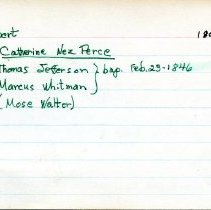 bert 18
Catherine Nez Perce
Thomas Jefferson } bap. Feb. 29-1846
Marcus Whitman }
(Mose Walter)